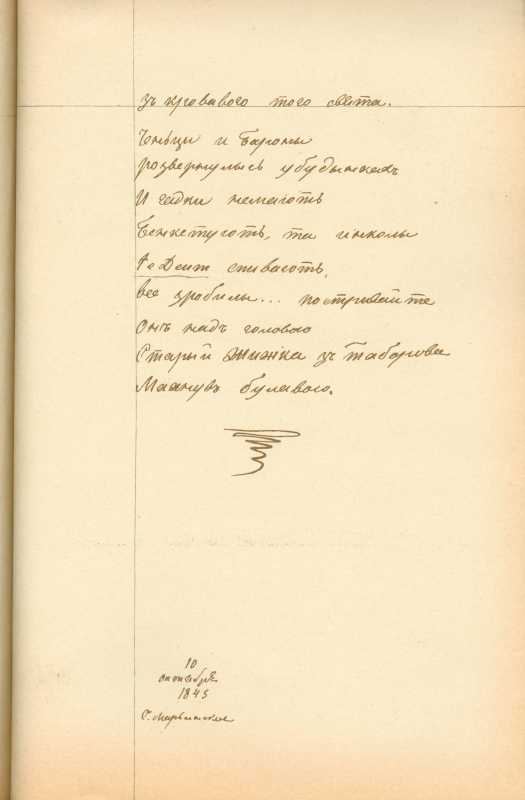 зъ кровавого того свѣта.
Ченьци и Бароны
розвернулысь у будынкахъ
И гадки немають
Бенкетують, та инколы
Те Deum спивають,
все зробылы... пострывайте
Онъ надъ головою
Старый Жижка зъ Таборова
Махнувъ булавою.
10
октября
1845
С. Марьинское